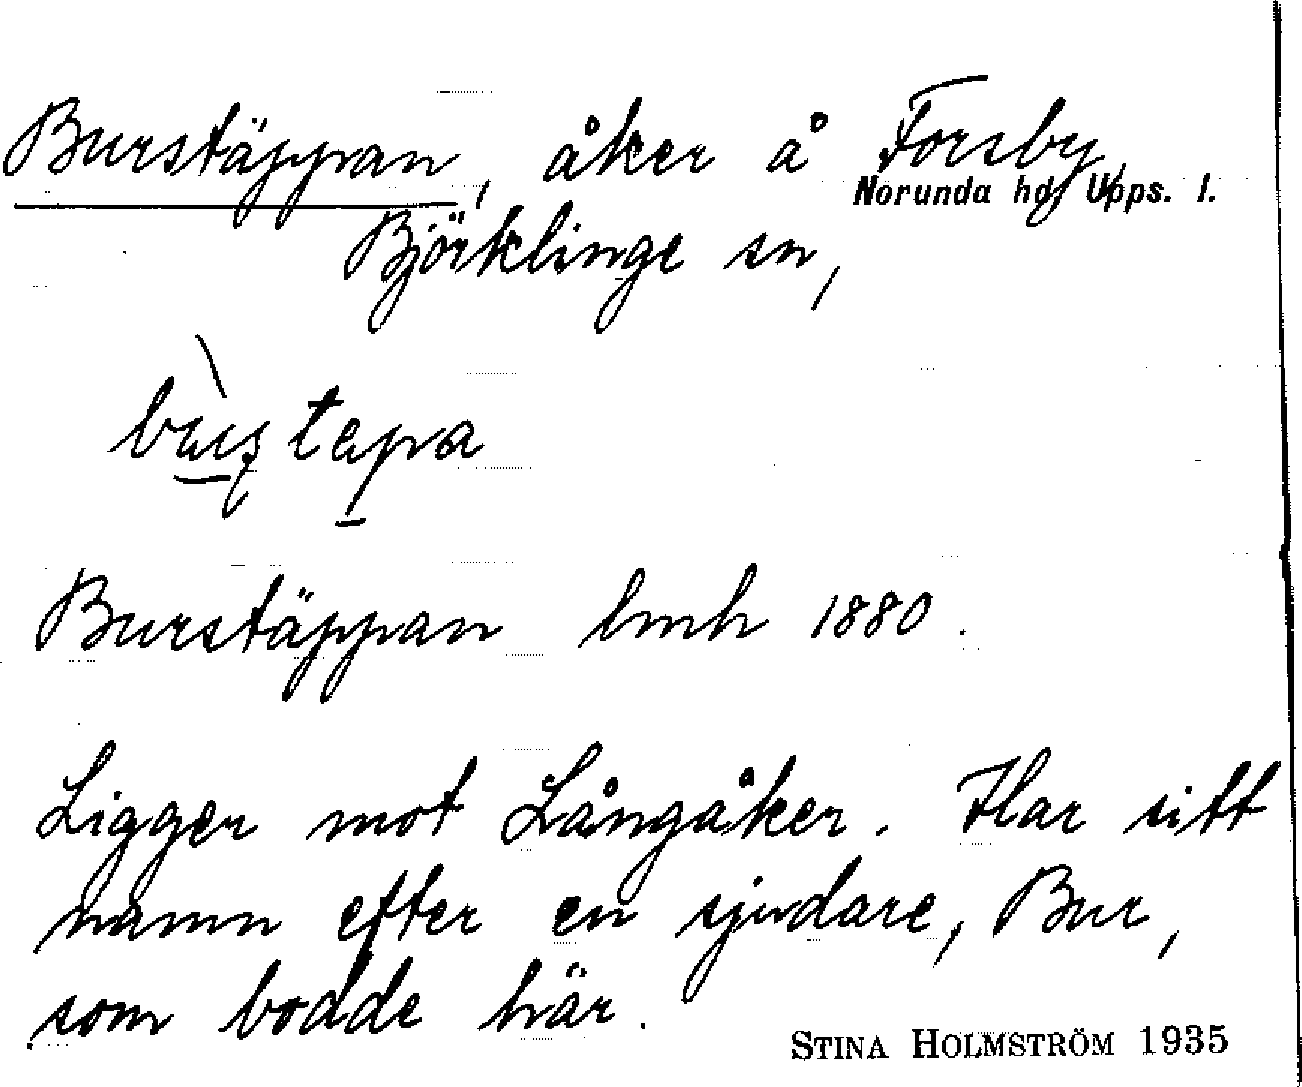 Burstäppan, åker å Forsby,
Norunda hd, Upps. l.
Björklinge sn,
Burstäppan lmh 1880.
Ligger mot Långåker. Har sitt
namn efter en sjudare, Bur,
som bodde här.
STINA HOLMSTRÖM 1935